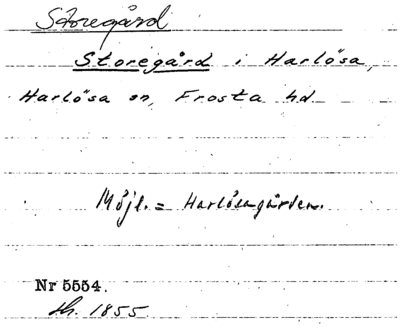 Storegård
Storegård i Harlösa,
Harlösa sn, Frosta hd.
Möjl. = Harlösagården.
Nr 5554.
1855